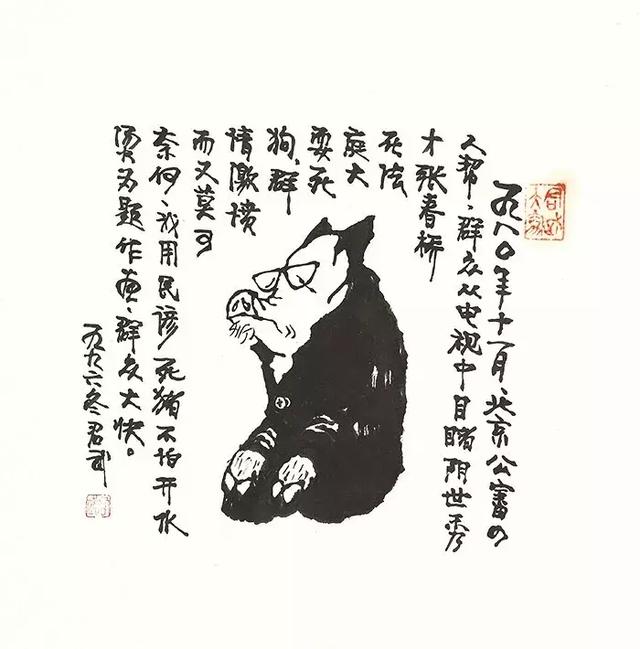 一九八〇年十一月、北京公審四
人帮、群众从电视中目睹阴世秀
才张春桥
在法
庭大
耍死
狗、群
情激愤
而又莫可
奈何、我用民谚死猪不怕开水
烫为题作画、群众大快。
一九九六冬君武